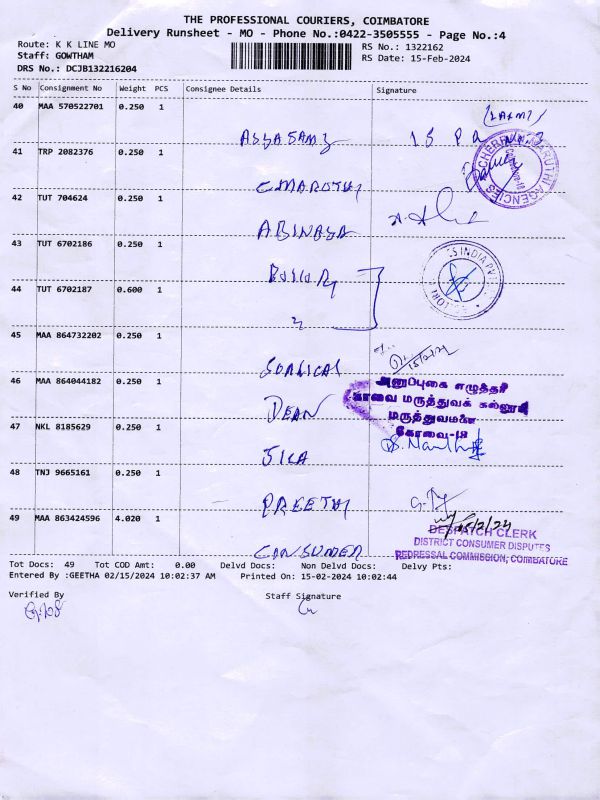 THE PROFESSIONAL COURIERS, COIMBATORE
Delivery Runsheet - MO - Phone No.:0422-3505555 - Page No.:4
Route: K K LINE MO
Staff: GOWTHAM
DRS No.: DCJB132216204
RS No.: 1322162
RS Date: 15-Feb-2024
S No Consignment No Weight PCS Consignee Details Signature
40 MAA 570522701 0.250 1
41 TRP 2082376 0.250 1
C.MAROTHI
42 TUT 704624 0.250 1
ABINAYA
43 TUT 6702186 0.250 1
44 TUT 6702187 0.600 1
45 MAA 864732202 0.250 1
15/2/24
SURGICAL
46 MAA 864044182 0.250 1
அனுப்புகை எழுத்தர்
கோவை மருத்துவக் கல்லூரி
மருத்துவமனை
கோவை-18
DEAN
47 NKL 8185629 0.250 1
SICA
48 TNJ 9665161 0.250 1
PREETHI
49 MAA 863424596 4.020 1
15/2/24
DESPATCH CLERK
DISTRICT CONSUMER DISPUTES
REDRESSAL COMMISSION, COIMBATORE
CONSUMER
Tot Docs: 49 Tot COD Amt: 0.00 Delvd Docs: Non Delvd Docs: Delvy Pts:
Entered By :GEETHA 02/15/2024 10:02:37 AM Printed On: 15-02-2024 10:02:44
Verified By Staff Signature